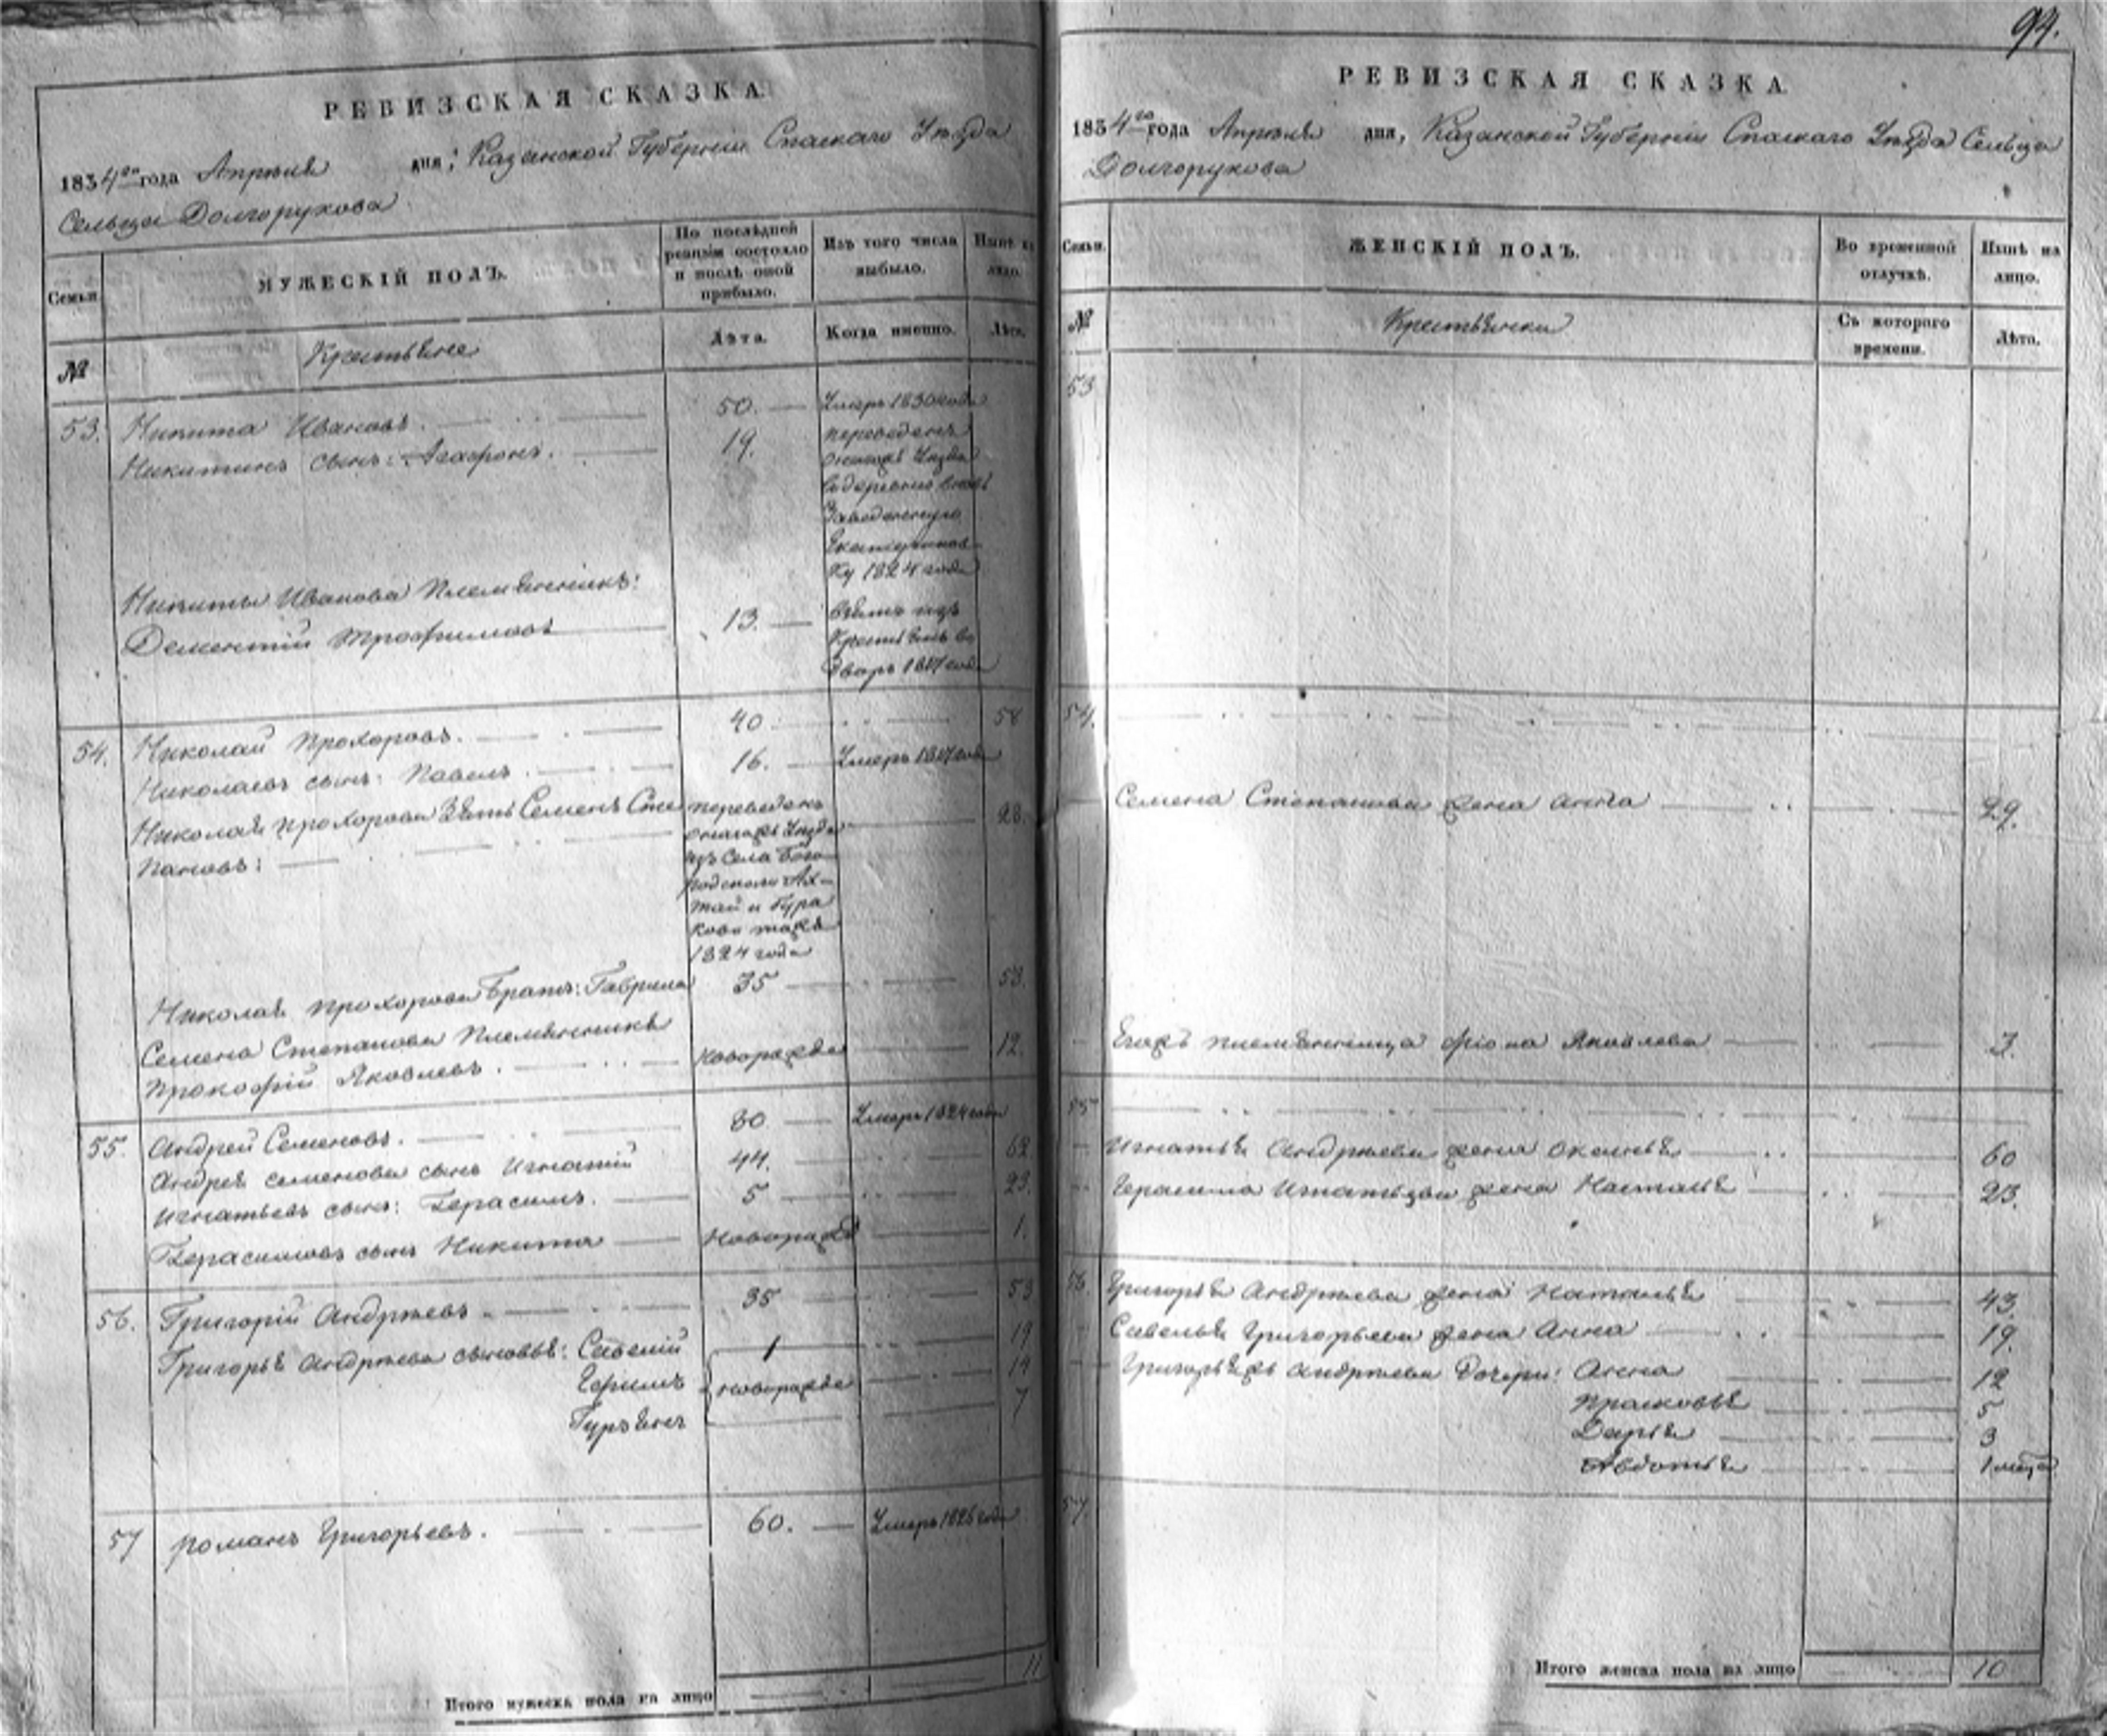 РЕВИЗСКАЯ СКАЗКА
1834го года Апреля дня, Казанской Губернии Спаскаго Уезда
Сельца Долгорукова
Семьи
МУЖЕСКІЙ ПОЛЪ.
По послѣдней ревизіи состояло и послѣ оной прибыло.
Изъ того числа выбыло.
Нынѣ на лицо.
№
Крестьяне
Лѣта.
Когда именно.
Лѣта.
53. Никита Ивановъ. 50. Умеръ 1830 года
Никитинъ сынъ: Агафонъ. 19. переведенъ
Уезда
в деревню вновь
Заведенную
Екатеринов-
ку 1824 года
Никиты Иванова Племянникъ:
Дементій Трофимовъ 13. взятъ изъ
Крестьянъ во
дворъ 1817 года
54. Николай Прохоровъ. 40. 58
Николаевъ сынъ: Павелъ. 16. Умеръ 1817 года
Николая Прохорова Зять Семенъ Сте переведенъ 28.
пановъ: Уезда
изъ Села Бого
родскаго Ах-
тай и Бура
ково тожъ
1824 года
Николая Прохорова Братъ: Гаврила 35 53.
Семена Степанова Племянникъ
Прокофій Яковлевъ. новорожде 12.
55. Андрей Семеновъ. 80 Умеръ 1824 года
Андрея Семенова сынъ Игнатій 44. 62
Игнатьевъ сынъ: Герасимъ. 5 23.
Герасимовъ сынъ Никита Новорожд 1.
56. Григорій Андреевъ. 35 53
Григорья Андреева сыновья: Савелій 1 19
Ефимъ новорожде 14
Гурьянъ 7
57 Романъ Григорьевъ. 60. Умеръ 1826 года
Итого мужеска пола на лицо 11
94.
РЕВИЗСКАЯ СКАЗКА
1834го года Апреля дня, Казанской Губерніи Спаскаго Уезда Сельца
Долгорукова
Семьи.
ЖЕНСКІЙ ПОЛЪ.
Во временной отлучкѣ.
Нынѣ на лицо.
№
Крестьянки
Съ котораго времени.
Лѣта.
53
54.
Семена Степанова жена Анна 29.
Егожъ племянница Яковлева 3.
55
Игнатья Андреева жена Оксинья 60
Герасима Игнатьева жена Наталья 23.
56. Григорья Андреева жена Наталья 43.
Савелья Григорьева жена Анна 19.
Григорьяжъ Андреева Дочери: Анна 12
Прасковья 5
Дарья 3
Авдотья 1 меся
57.
Итого женска пола на лицо 10